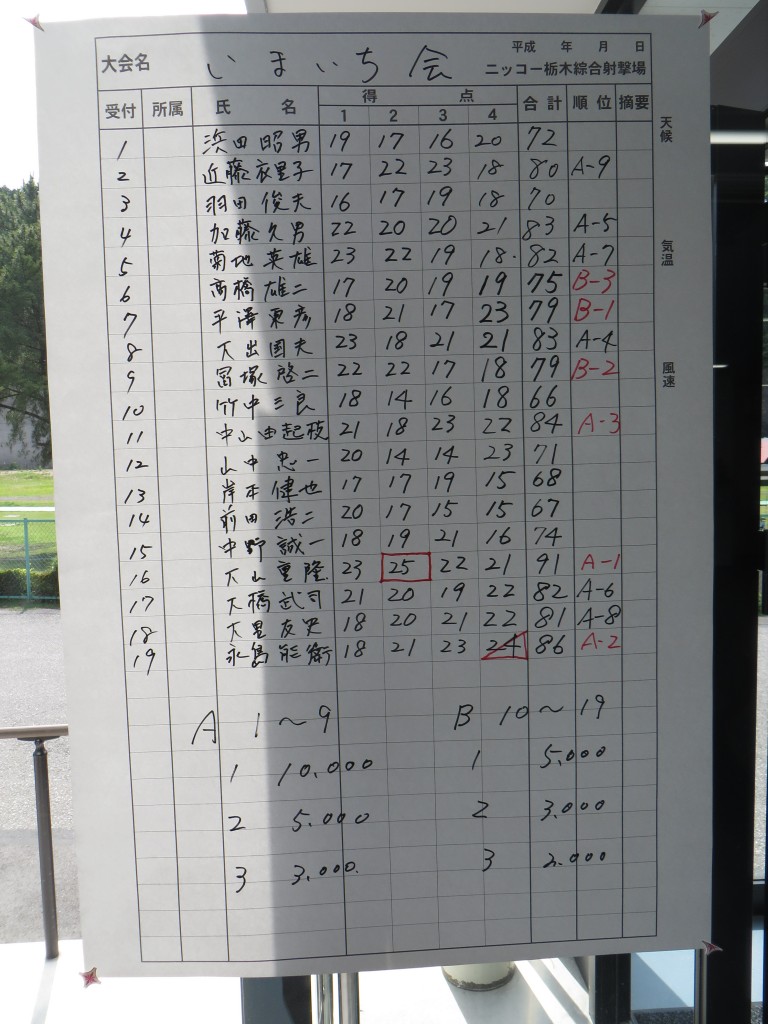 平成 年 月 日
大会名 いまいち会 ニッコー栃木綜合射撃場
受付 所属 氏 名 得 点 合計 順位 摘要
1 2 3 4
天候
気温
風速
1 浜田昭男 19 17 16 20 72
2 近藤衣里子 17 22 23 18 80 A-9
3 羽田俊夫 16 17 19 18 70
4 加藤久男 22 20 20 21 83 A-5
5 菊地英雄 23 22 19 18. 82 A-7
6 高橋雄二 17 20 19 19 75 B-3
7 平澤東彦 18 21 17 23 79 B-1
8 大出国夫 23 18 21 21 83 A-4
9 冨塚啓二 22 22 17 18 79 B-2
10 竹中三良 18 14 16 18 66
11 中山由起枝 21 18 23 22 84 A-3
12 山中忠一 20 14 14 23 71
13 岸本健也 17 17 19 15 68
14 前田浩二 20 17 15 15 67
15 中野誠一 18 19 21 16 74
16 大山重隆 23 25 22 21 91 A-1
17 大橋武司 21 20 19 22 82 A-6
18 大里友史 18 20 21 22 81 A-8
19 永島能衛 18 21 23 24 86 A-2
A 1〜9 B 10〜19
1 10.000 1 5.000
2 5.000 2 3.000
3 3.000. 3 2.000